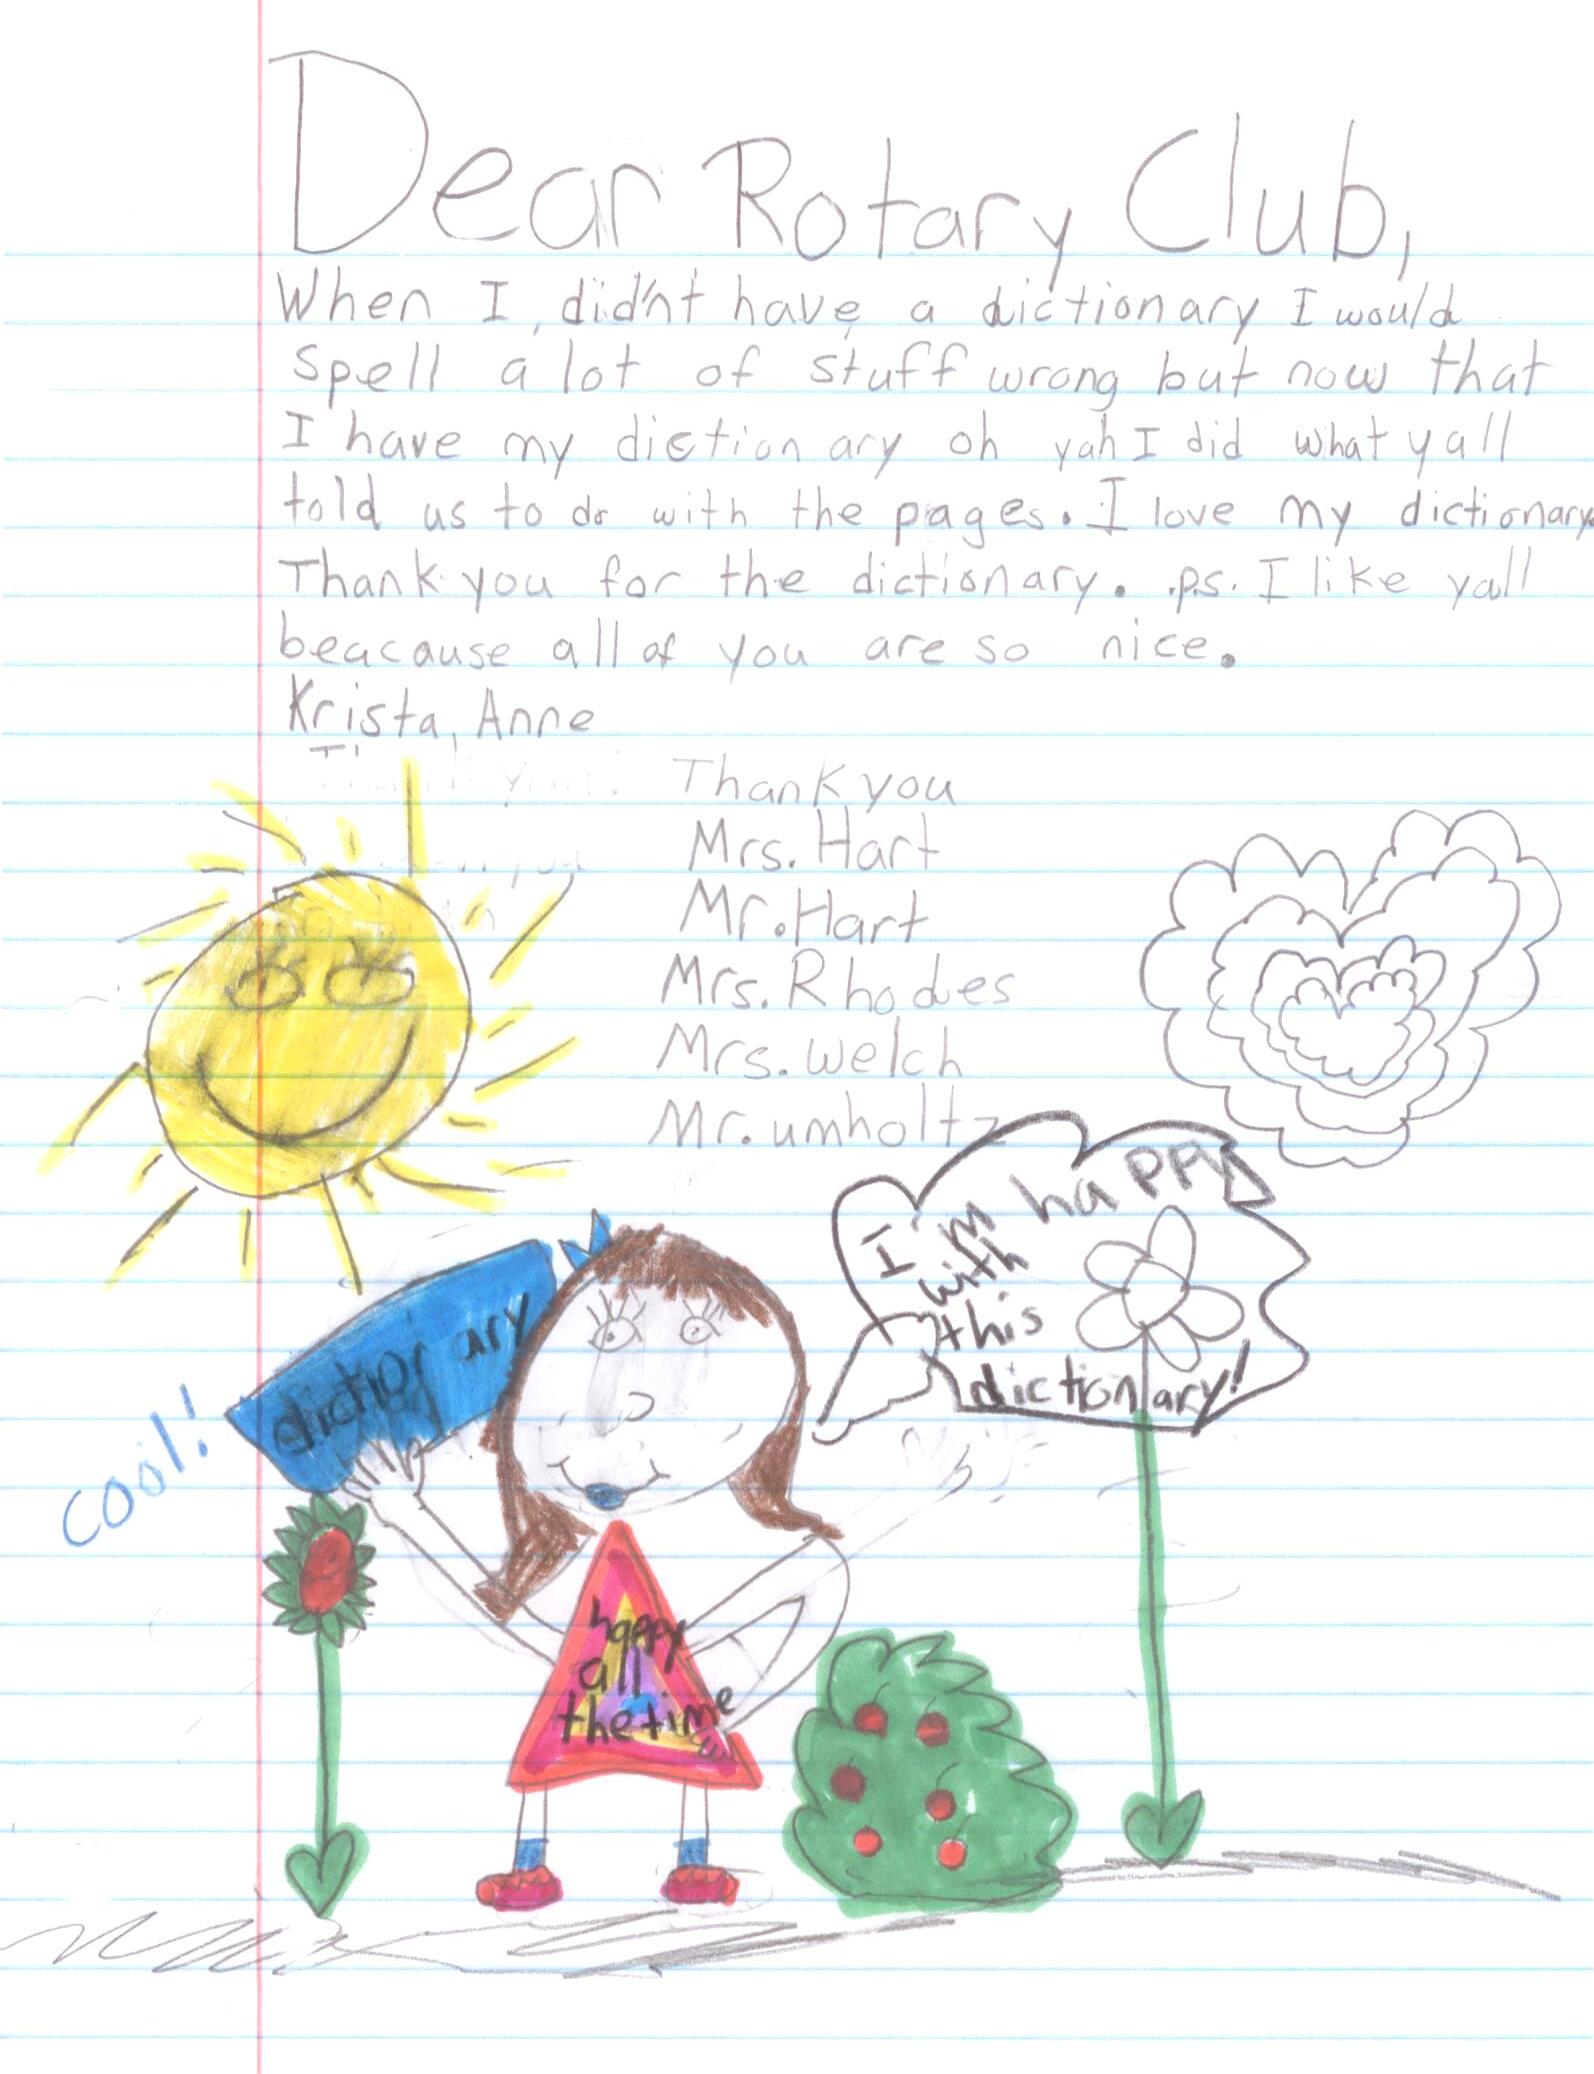 Dear Rotary Club,
When I didn't have a dictionary I would
spell a lot of stuff wrong but now that
I have my dictionary oh yah I did what yall
told us to do with the pages. I love my dictionary.
Thank you for the dictionary. .ps. I like yall
beacause all of you are so nice.
Krista, Anne
Thank you
Mrs. Hart
Mr. Hart
Mrs. Rhodes
Mrs. welch
Mr. umholtz
I'm happy
with
this
dictionary!
dictionary
cool!
happy
all
the time